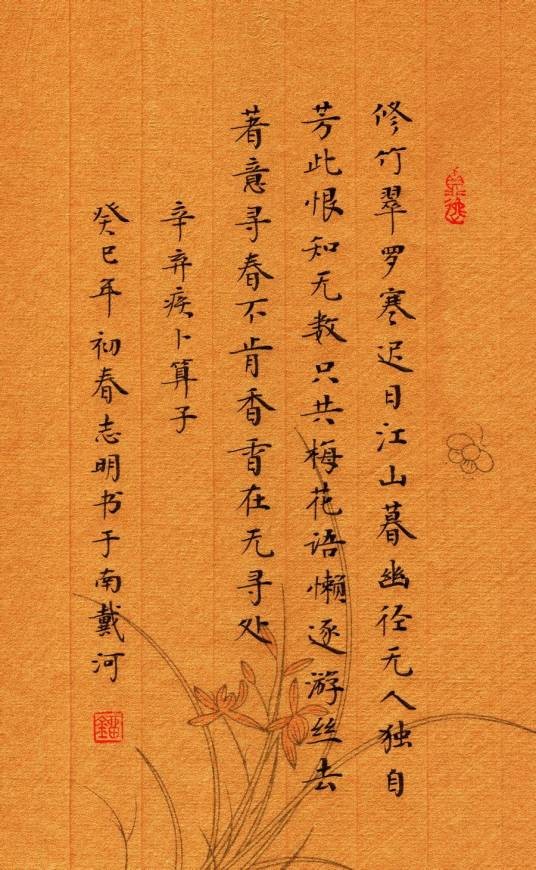 修竹翠罗寒迟日江山暮幽径无人独自
芳此恨知无数只共梅花语懒逐游丝去
著意寻春不肯香香在无寻处
辛弃疾卜算子
癸巳年初春志明书于南戴河